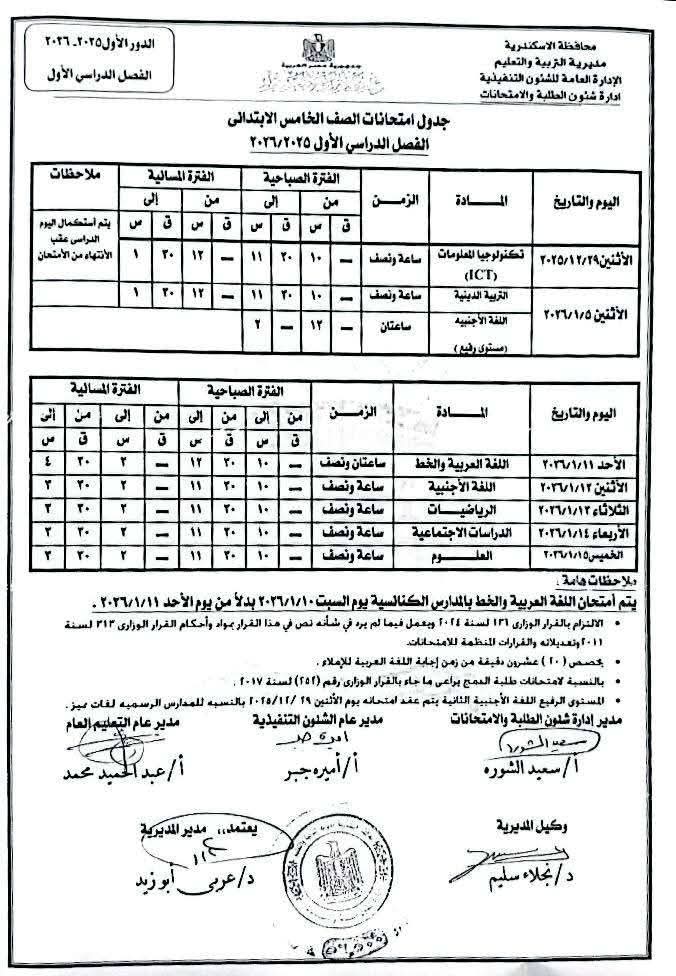 محافظة الاسكندرية
مديرية التربية والتعليم
الإدارة العامة للشئون التنفيذية
ادارة شئون الطلبة والامتحانات
جمهورية مصر العربية
الدور الأول ٢٠٢٥ـ ٢٠٢٦
الفصل الدراسي الأول
جدول امتحانات الصف الخامس الابتدائى
الفصل الدراسي الأول ٢٠٢٦/٢٠٢٥
اليوم والتاريخ المــــادة الزمـن الفترة الصباحية الفترة المسائية ملاحظات
من إلى من إلى
ق س ق س ق س ق س
الأثنين ٢٠٢٥/١٢/٢٩ تكنولوجيا المعلومات (ICT) ساعة ونصف — ١٠ ٣٠ ١١ — ١٢ ٣٠ ١ يتم أستكمال اليوم الدراسى عقب الأنتهاء من الأمتحان
الأثنين ٢٠٢٦/١/٥ التربية الدينية ساعة ونصف — ١٠ ٣٠ ١١ — ١٢ ٣٠ ١
اللغة الأجنبيه (مستوى رفيع) ساعتان — ١٢ — ٢
اليوم والتاريخ المــــادة الزمـــن الفترة الصباحية الفترة المسائية
من إلى إلى من إلى من إلى
ق س ق س ق س ق س
الأحد ٢٠٢٦/١/١١ اللغة العربية والخط ساعتان ونصف — ١٠ ٣٠ ١٢ — ٢ ٣٠ ٤
الأثنين ٢٠٢٦/١/١٢ اللغة الأجنبية ساعة ونصف — ١٠ ٣٠ ١١ — ٢ ٣٠ ٣
الثلاثاء ٢٠٢٦/١/١٣ الرياضيــــات ساعة ونصف — ١٠ ٣٠ ١١ — ٢ ٣٠ ٣
الأربعاء ٢٠٢٦/١/١٤ الدراسات الاجتماعية ساعة ونصف — ١٠ ٣٠ ١١ — ٢ ٣٠ ٣
الخميس ٢٠٢٦/١/١٥ العلـــــوم ساعة ونصف — ١٠ ٣٠ ١١ — ٢ ٣٠ ٣
ملاحظات هامة :
يتم أمتحان اللغة العربية والخط بالمدارس الكنائسية يوم السبت ٢٠٢٦/١/١٠ بدلاً من يوم الأحد ٢٠٢٦/١/١١ .
• الالتزام بالقرار الوزارى ١٣٦ لسنة ٢٠٢٤ ويعمل فيما لم يرد في شأنه نص في هذا القرار بمواد وأحكام القرار الوزارى ٣١٣ لسنة
٢٠١١ وتعديلاته والقرارات المنظمة للامتحانات.
• يخصص (٢٠) عشرون دقيقة من زمن إجابة اللغة العربية للإملاء .
• بالنسبة لامتحانات طلبة الدمج يراعى ما جاء بالقرار الوزارى رقم (٢٥٢) لسنة ٢٠١٧ .
• المستوى الرفيع اللغة الأجنبية الثانية يتم عقد امتحانه يوم الأثنين ٢٩ /٢٠٢٥/١٢ بالنسبه للمدارس الرسميه لغات ميز .
مدير إدارة شئون الطلبة والامتحانات مدير عام الشئون التنفيذية مدير عام التعليم العام
سعيد الشوره
أ/ سعيد الشوره أ/ أميره جبر أ/ عبد الحميد محمد
وكيل المديرية يعتمد،، مدير المديرية
د/ نجلاء سليم د/ عربى أبوزيد